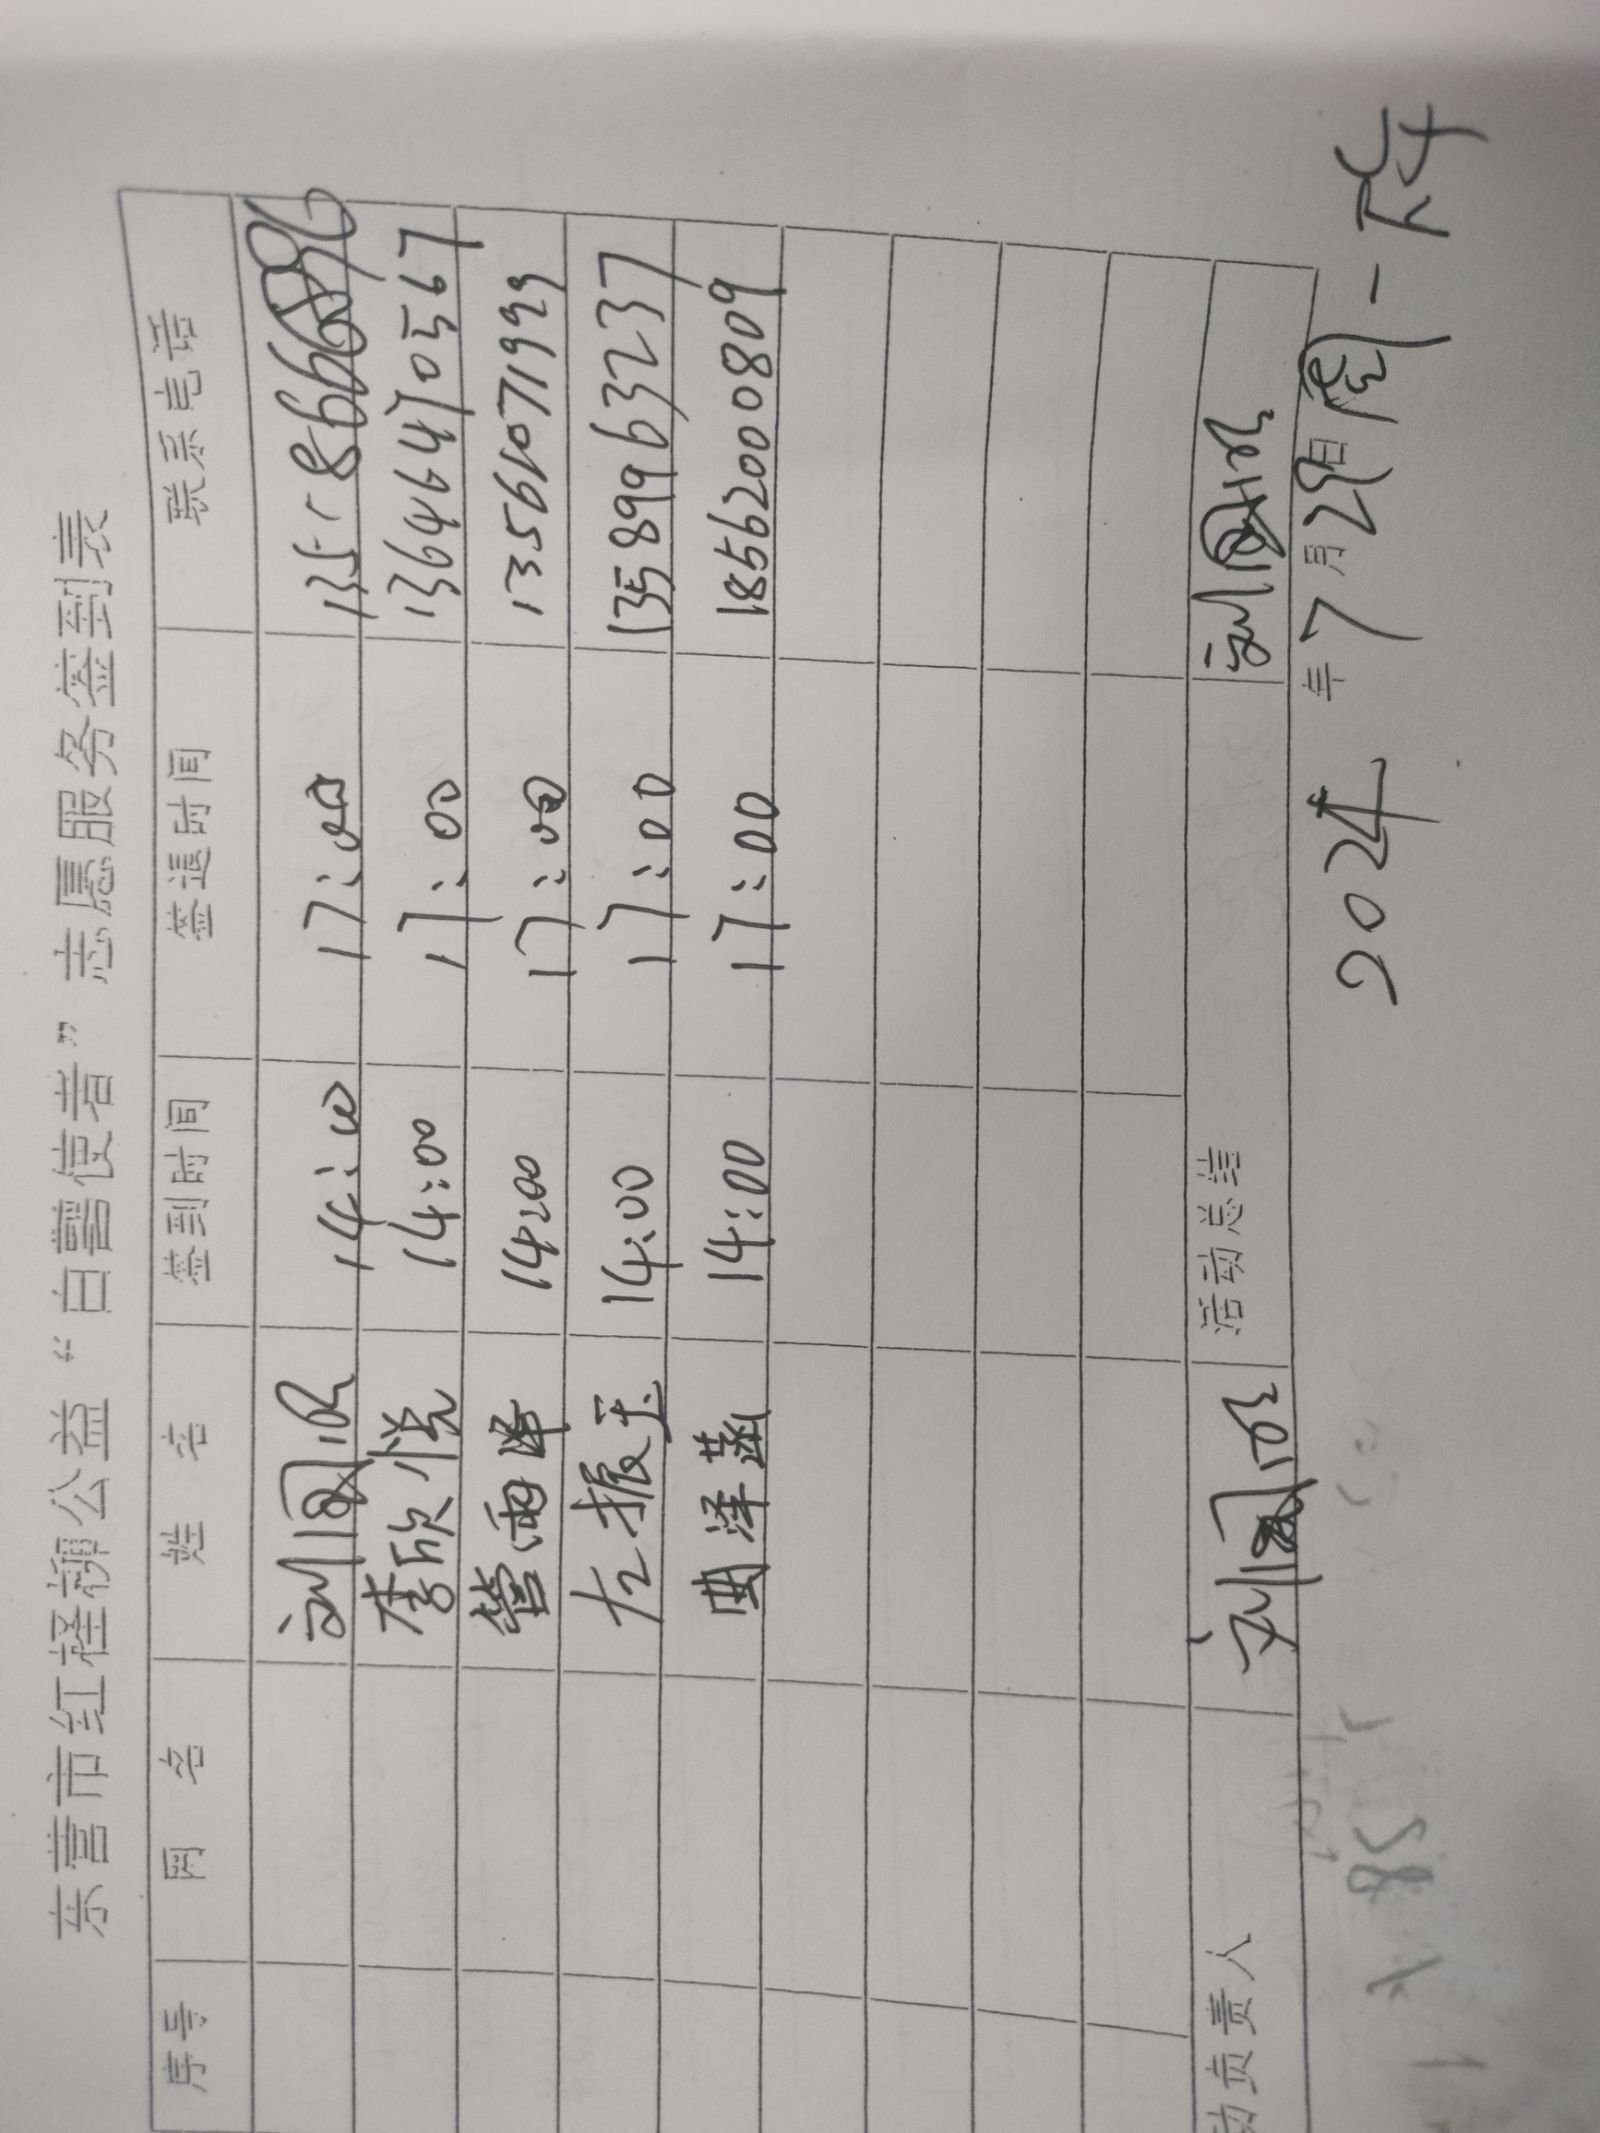 东营市红柽柳公益“白鹭使者”志愿服务签到表
序号 网名 姓名 签到时间 签退时间 联系电话
14:00 17:00
李欣悦 14:00 17:00 13646470567
管雨泽 14:00 17:00 13561071993
左振玉 14:00 17:00 13589963237
曲泽菡 14:00 17:00 18562000809
动负责人 活动总结
2024年7月29日周一下午